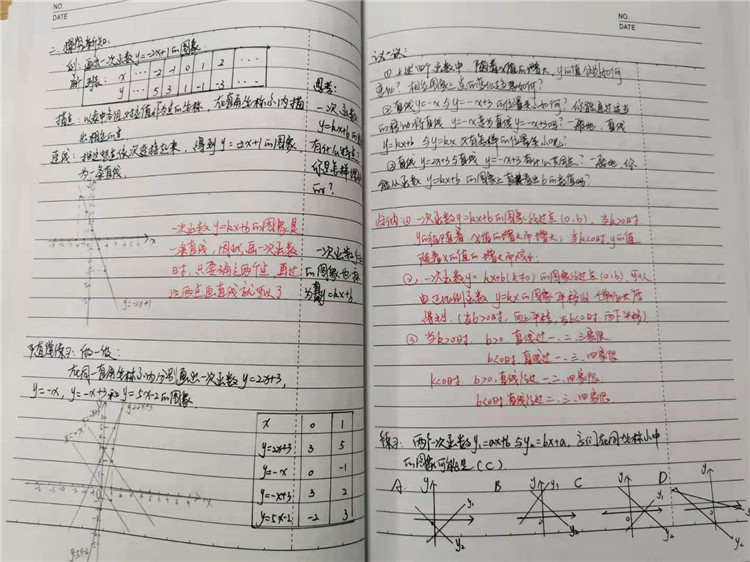 NO.
DATE
二、探究新知:
例: 画出一次函数 y=-2x+1 的图象
解: 列表: x … -2 -1 0 1 2 …
y … 5 3 1 -1 -3 …
描点: 以表中各组对应值作为点的坐标, 在直角坐标系内描
出相应的点
连线: 把这些点依次连接起来, 得到 y=-2x+1 的图象
为一条直线.
思考:
一次函数
y=kx+b
有什么
你是怎样
的?
一次函数 y=kx+b 的图象是
一条直线, 因此画一次函数
时, 只要确定两个点, 再过
这两点画直线就可以了
一次函数
的图象也称
为y=kx+b.
y=-2x+1
做一做:
在同一直角坐标系内分别画出一次函数 y=2x+3,
y=-x, y=-x+3和 y=5x-2的图象
y=2x+3
x 0 1
y=2x+3 3 5
y=-x 0 -1
y=-x+3 3 2
y=5x-2 -2 3
y=5x-2
NO.
DATE
议一议:
① 上述四个函数中, 随着x值的增大, y的值分别如何
变化? 相应图象上点的变化趋势如何?
② 直线y=-x与y=-x+3的位置关系如何? 你能通过适当
的移动将直线 y=-x变为直线y=-x+3吗? 一般地, 直线
y=kx+b 与y=kx 又有怎样的位置关系呢?
③ 直线y=2x+3与直线 y=-x+3有什么共同点? 一般地, 你
能从函数 y=kx+b 的图象上直接看出b的数值吗?
归纳: ① 一次函数y=kx+b的图象经过点(0,b), 当k>0时
y的值随着 x值的增大而增大; 当k<0时, y的值
随着x的值的增大而减小.
②, 一次函数y=kx+b(k≠0)的图象经过点(0,b) 可以
由正比例函数 y=kx的图象平移|b|个单位长度
得到. (当b>0时, 向上平移, 当b<0时, 向下平移)
③ 当k>0时, b>0, 直线过一、二、三象限
b<0时, 直线过一、三、四象限
k<0时, b>0, 直线经过一、二、四象限
b<0时, 直线经过二、三、四象限
练习: 两个一次函数y₁=ax+b与y₂=bx+a, 它们在同一坐标系中
的图象可能是(C)
A B C D
y y₁ y₂